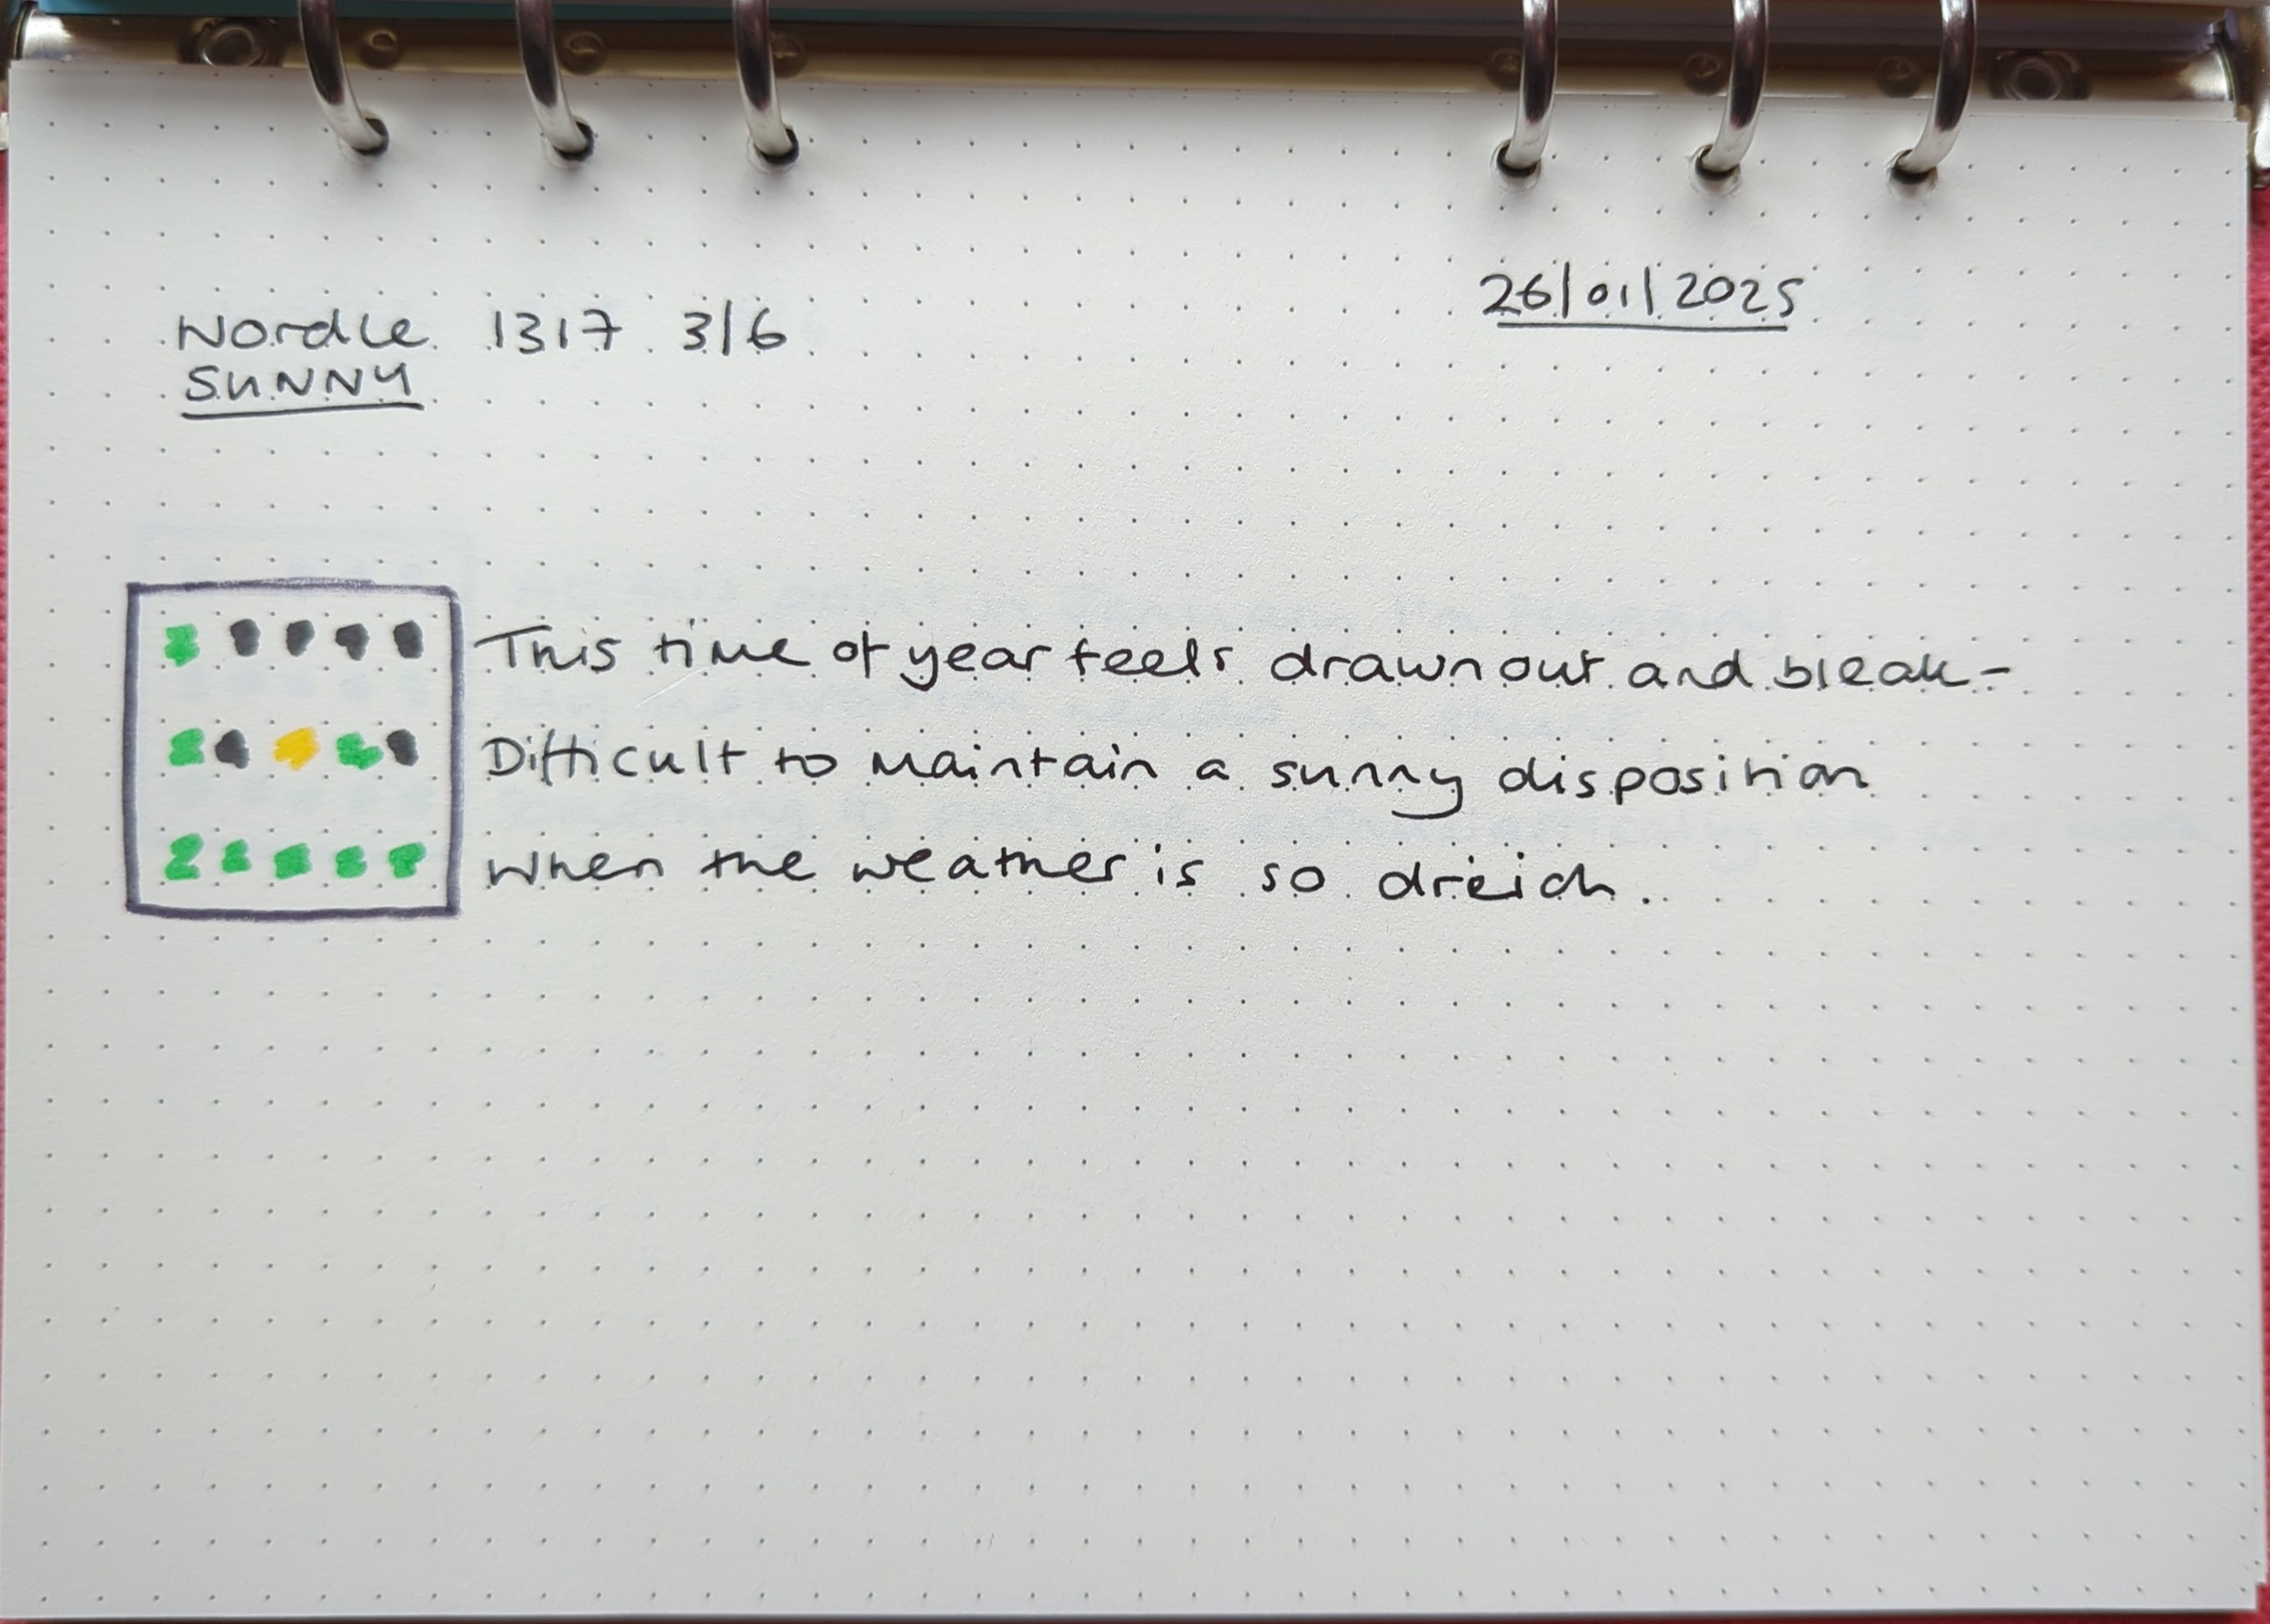 Wordle 1317 3/6
26/01/2025
SUNNY
This time of year feels drawn out and bleak-
Difficult to maintain a sunny disposition
When the weather is so dreich.